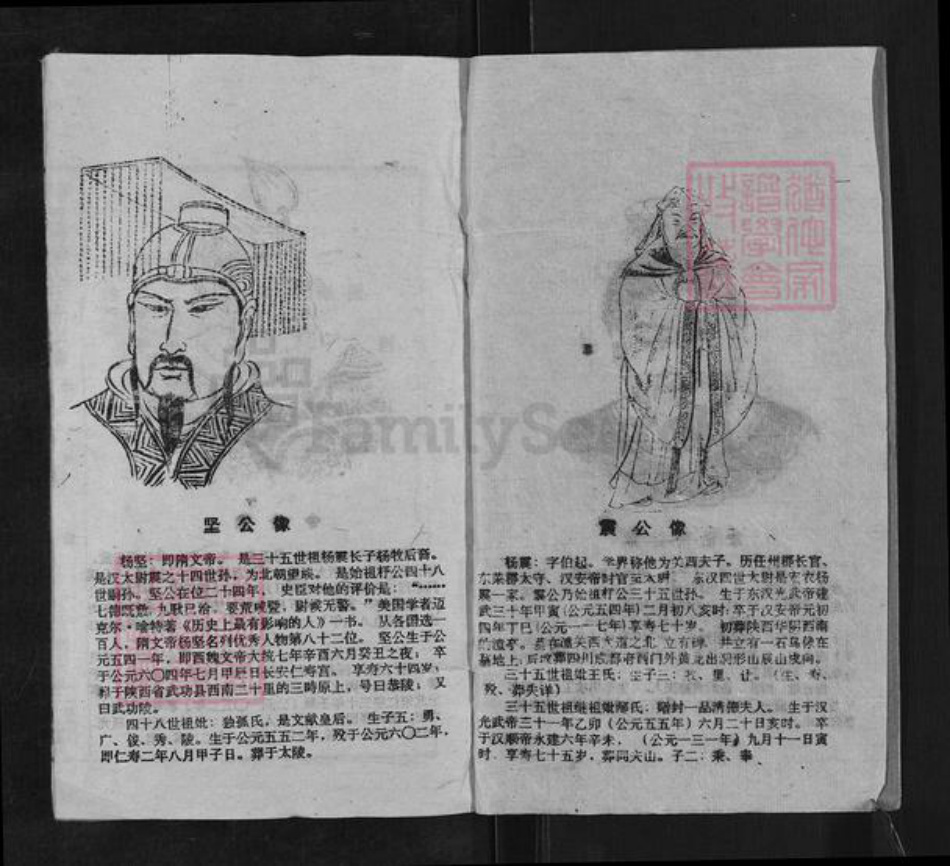 坚公像
杨坚：即隋文帝。是三十五世祖杨震长子杨牧后裔。
是汉太尉震之十四世孙，为北朝望族。是始祖杼公四十八
世嗣孙。坚公在位二十四年，史臣对他的评价是：“……
七德既敷，九歌已洽，要荒咸暨，尉候无警。”美国学者迈
克尔·哈特著《历史上最有影响的人》一书。从各国选一
百人，隋文帝杨坚名列优秀人物第八十二位。坚公生于公
元五四一年，即西魏文帝大统七年辛酉六月癸丑之夜；卒
于公元六〇四年七月甲辰日长安仁寿宫。享寿六十四岁；
葬于陕西省武功县西南二十里的三畤原上，号曰泰陵；又
曰武功陵。
四十八世祖妣：独孤氏，是文献皇后。生子五：勇、
广、俊、秀、谅。生于公元五五二年，殁于公元六〇二年，
即仁寿二年八月甲子日。葬于太陵。
震公像
杨震：字伯起。学界称他为关西夫子。历任州郡长官、
东莱郡太守、汉安帝时官至太尉。东汉四世太尉是宏农杨
震一家。震公乃始祖杼公三十五世孙。生于东汉光武帝建
武三十年甲寅(公元五四年)二月初八亥时；卒于汉安帝元初
四年丁巳(公元一一七年)享寿七十岁。初葬陕西华阴西南
的潼亭。墓在潼关西大道之北，立有碑，并立有一石鸟像在
墓地上；后改葬四川成都府西门外黄龙出洞形山辰山戌向。
三十五世祖妣王氏：生子三：牧、里、让。（生、寿、
殁、葬失详）
三十五世祖继祖妣郝氏：赠封一品清德夫人。生于汉
光武帝三十一年乙卯（公元五五年）六月二十日亥时。卒
于汉顺帝永建六年辛未，（公元一三一年）九月十一日寅
时，享寿七十五岁，葬同夫山。子二：秉、奉
FamilySe